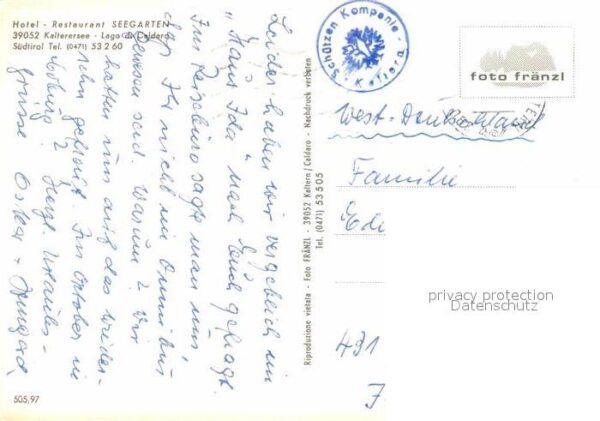 Hotel - Restaurant SEEGARTEN
39052 Kalterersee - Lago di Caldaro
Südtirol Tel. (0471) 53 2 60
Leider haben wir vergeblich im
"Haus Ida" nach Euch gefragt.
Im Reisebüro sagte man uns
daß Ihr nicht im Omnibus
gewesen seid. Warum? Wir
hatten uns auf das Wieder-
sehn gefreut. Im Oktober in
Herzl. Urlaubs-
grüsse Oskar + Irmgard
505,97
Riproduzione vietata - Foto FRÄNZL - 39052 Kaltern / Caldaro - Nachdruck verboten
Tel. (0471) 53 5 05
Schützen Kompanie
Kaltern
foto fränzl
West-Deutschland
Familie
Edi
privacy protection
Datenschutz
431